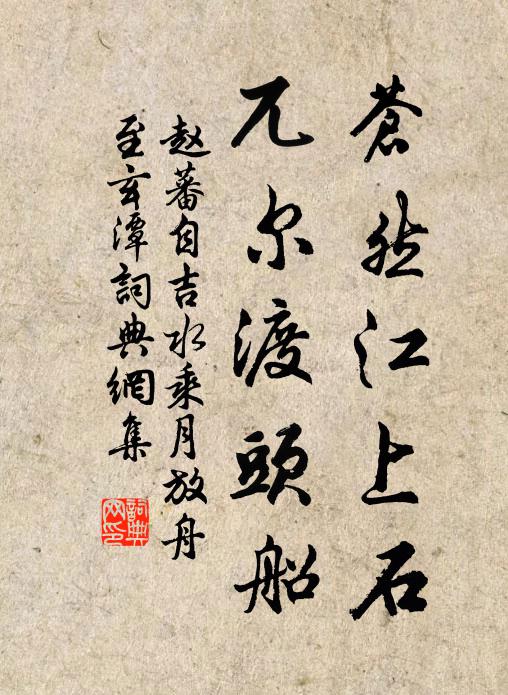 蒼然江上石
兀尔渡頭船
赵蕃自吉水乘月放舟
至玄潭詞典網集
詞典
网印